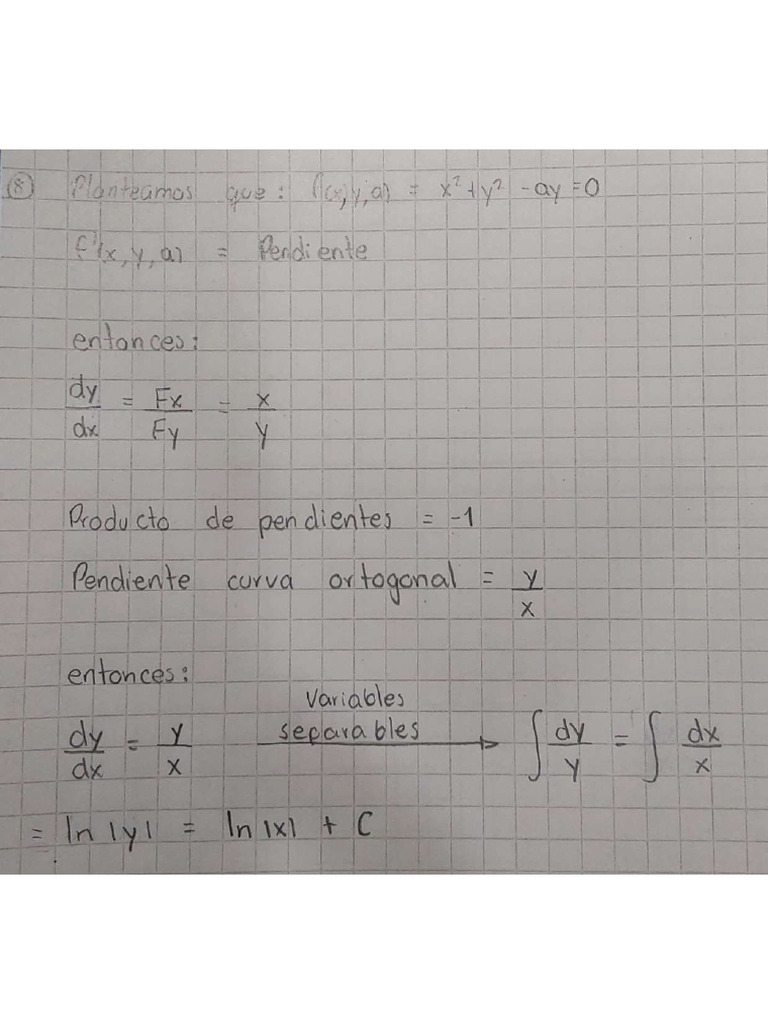 ⑧ Planteamos que: f(x,y,a) = x² + y² - ay = 0
f'(x, y, a) = Pendiente
entonces:
dy/dx = Fx/Fy = x/y
Producto de pendientes = -1
Pendiente curva ortogonal = y/x
entonces:
dy/dx = y/x Variables separables → ∫ dy/y = ∫ dx/x
= ln |y| = ln |x| + C